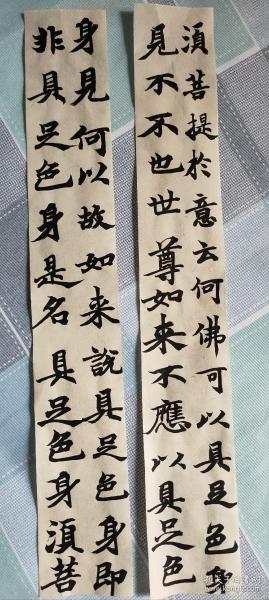 須菩提於意云何佛可以具足色身
見不不也世尊如来不應以具足色
身見何以故如来說具足色身即
非具足色身是名具足色身須菩